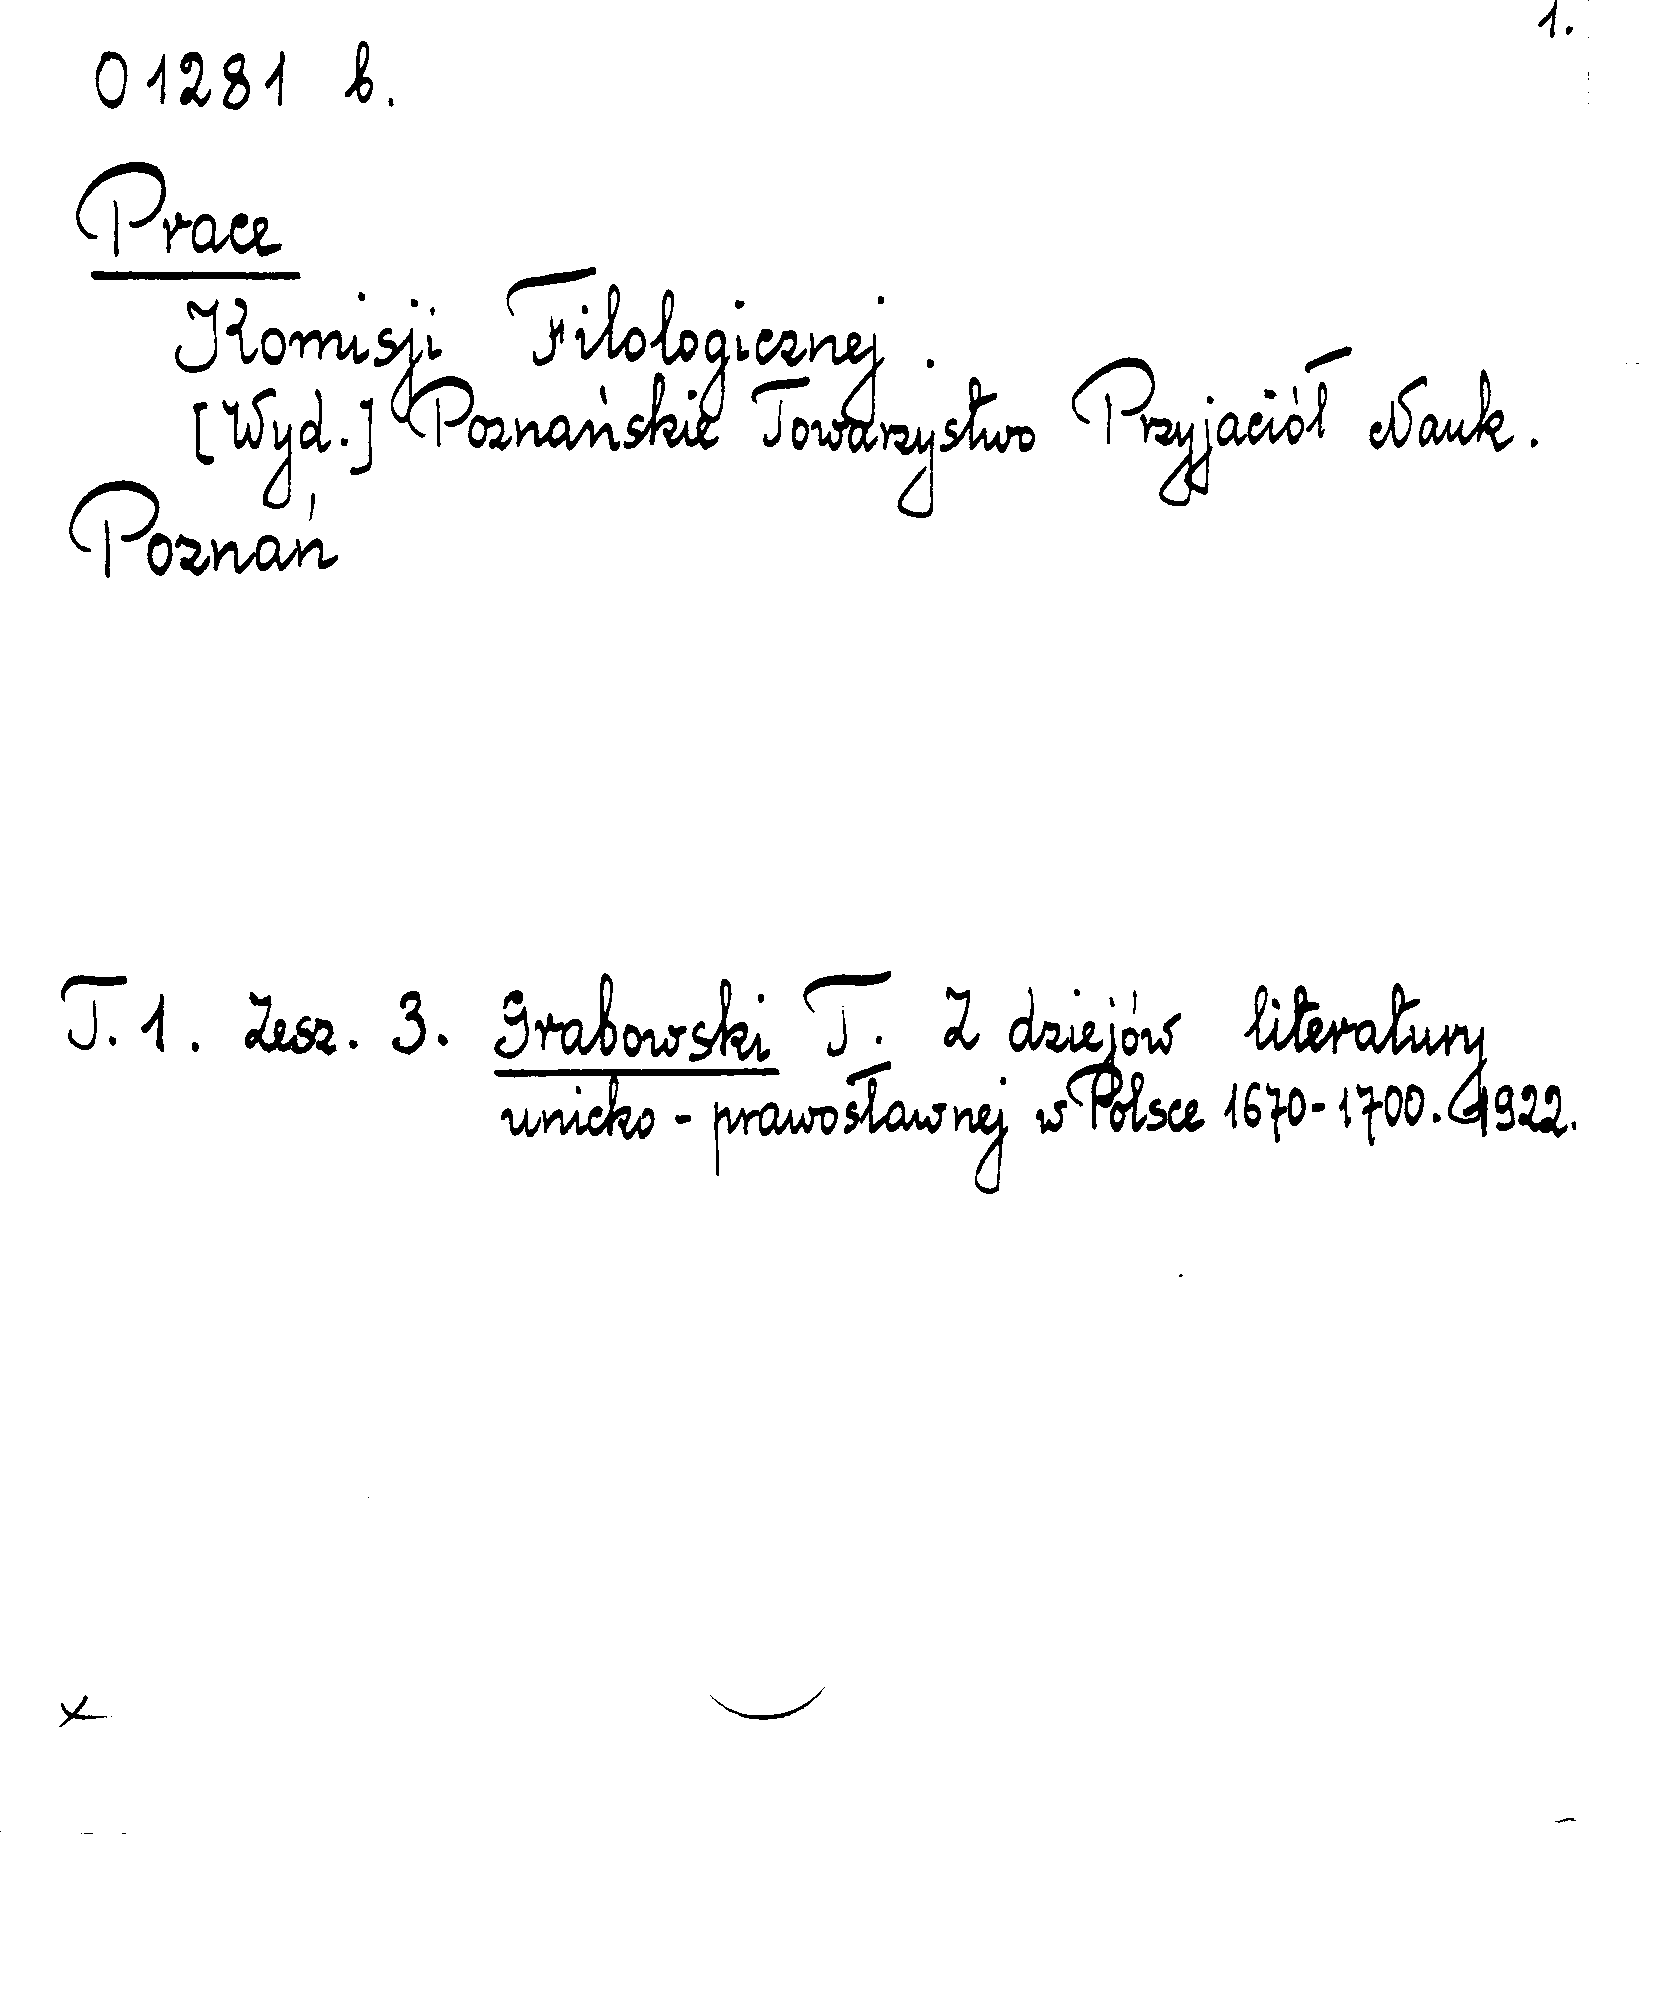 1.
01281 b.
Prace
Komisji Filologicznej.
[Wyd.] Poznańskie Towarzystwo Przyjaciół Nauk.
Poznań
T. 1. Zesz. 3. Grabowski T. Z dziejów literatury
unicko-prawosławnej w Polsce 1670-1700. 1922.
x